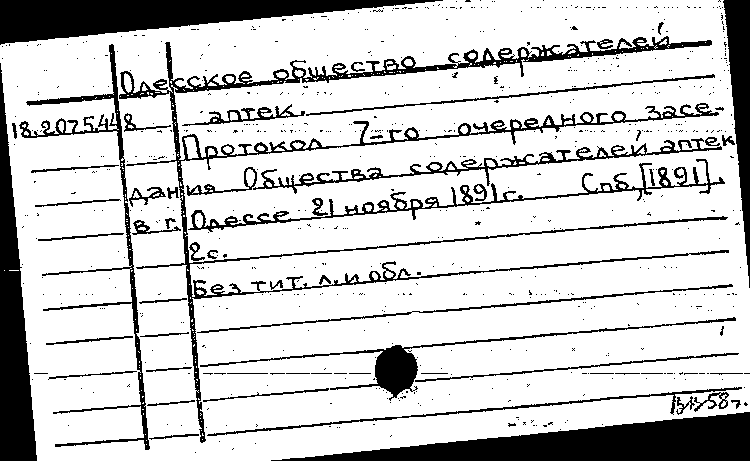 Одесское общество содержателей
18.2075.448 аптек.
Протокол 7-го очередного засе-
дания Общества содержателей аптек
в г. Одессе 21 ноября 1891 г. Спб., [1891].
2 с.
Без тит. л. и обл.